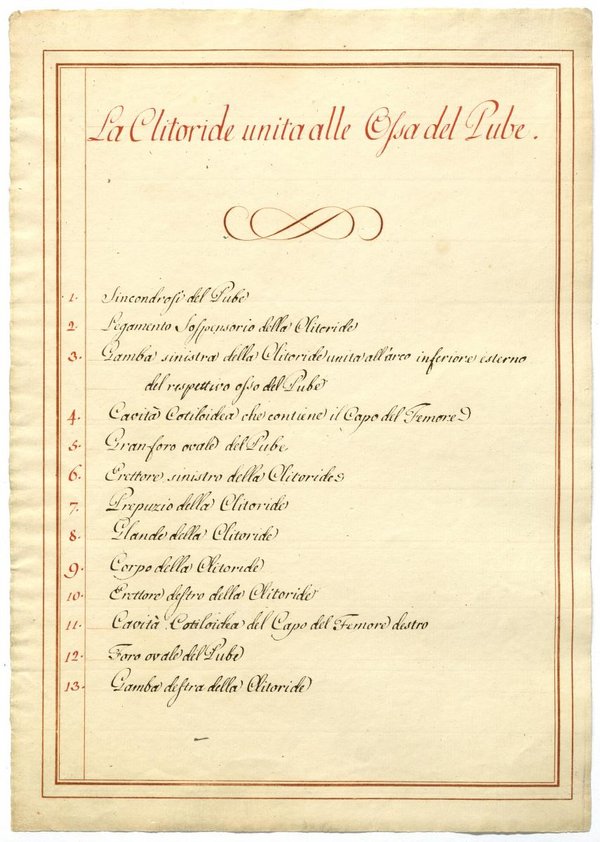 La Clitoride unita alle Ossa del Pube.
1. Sincondrosi del Pube
2. Legamento Sospensorio della Clitoride
3. Gamba sinistra della Clitoride unita all'arco inferiore esterno
del respettivo osso del Pube
4. Cavità Cotiloidea che contiene il Capo del Femore
5. Gran foro ovale del Pube
6. Erettore sinistro della Clitoride
7. Prepuzio della Clitoride
8. Glande della Clitoride
9. Corpo della Clitoride
10. Erettore destro della Clitoride
11. Cavità Cotiloidea del Capo del Femore destro
12. Foro ovale del Pube
13. Gamba destra della Clitoride